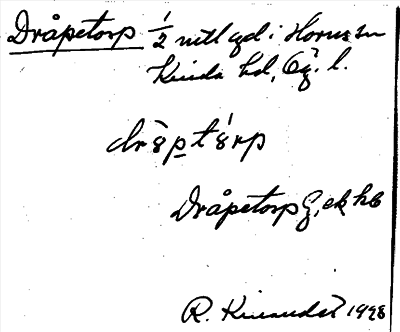 Dråpetorp 1/2 mtl gd i Horns sn
Kinda hd, Ög. l.
dråpt'årp
Dråpetorp G, ek hb
R. Kinander 1928